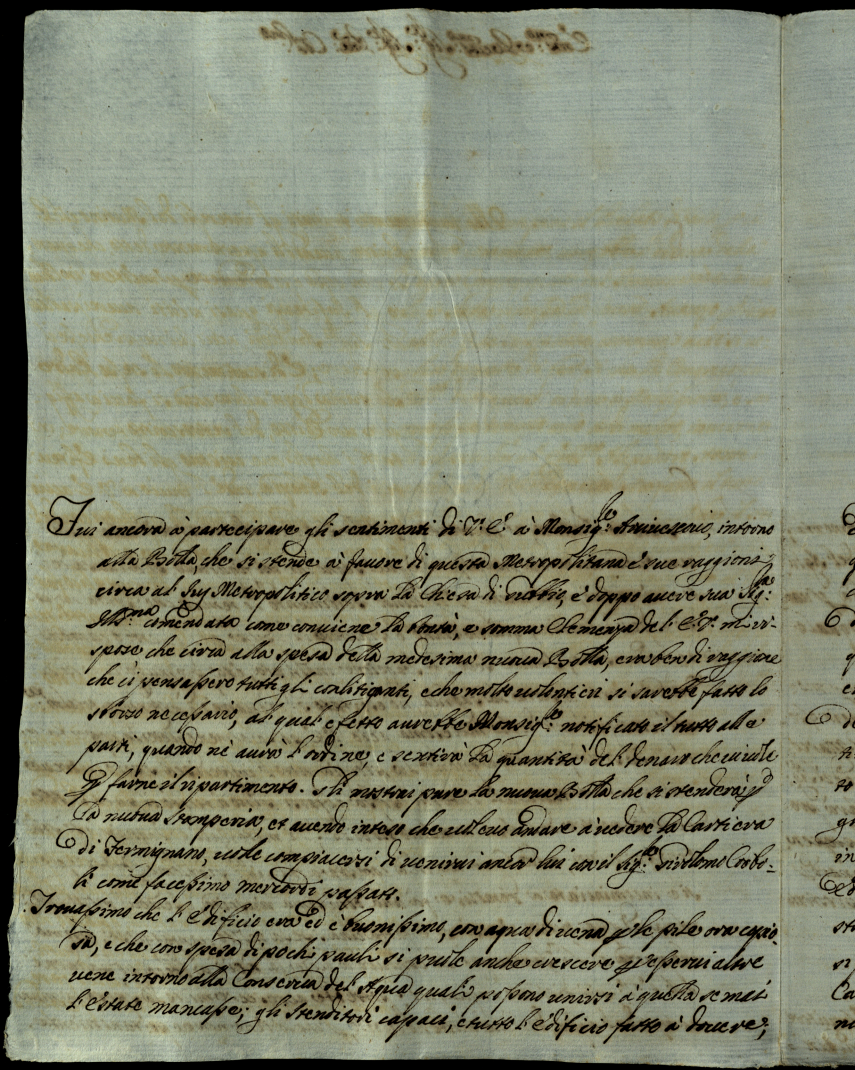 Fui ancora à partecipare gli sentimenti di V. E. à Monsig.re Arcivescovo, intorno
alla Bolla, che si stende à favore di questa Metropolitana é sue raggioni
circa al Jus Metropolitico sopra la Chiesa di Gubbio, é doppo avere sua Sig.ria
Ill.ma comendata come conviene la bontà, e somma Clemenza del E. V. mi ri-
spose che circa alla spesa della medesima nuova Bolla, era ben di raggione
che ci pensassero tutti gli coalitiganti, e che molto volontieri si sarebbe fatto lo
sforzo necessario, al qual efetto avrebbe Monsig.re notificato il tutto alle
parti, quando ne avrà l'ordine, e sentirà la quantità del denaro che ci vole
p farne il ripartimento. Gli mostrai pure la nuova Bolla che si stenderà p
la nuova Stamperia, et avendo inteso che volevo andare à vedere la Cartiera
di Fermignano, volle compiacersi di venirvi ancor lui con il Sig.re Girolamo
come facessimo mercordi passato.
Trovassimo che l'Edificio era ed è buonissimo, con aqua di vena p le pile ora copio-
sa, e che con spesa di pochi pauli si puole anche crescere p esservi altre
vene intorno alla Conserva del Aqua quali possono unirsi à quella se mai
l'estate mancasse; gli stenditori capaci, e tutto l'edificio fatto à dovere;